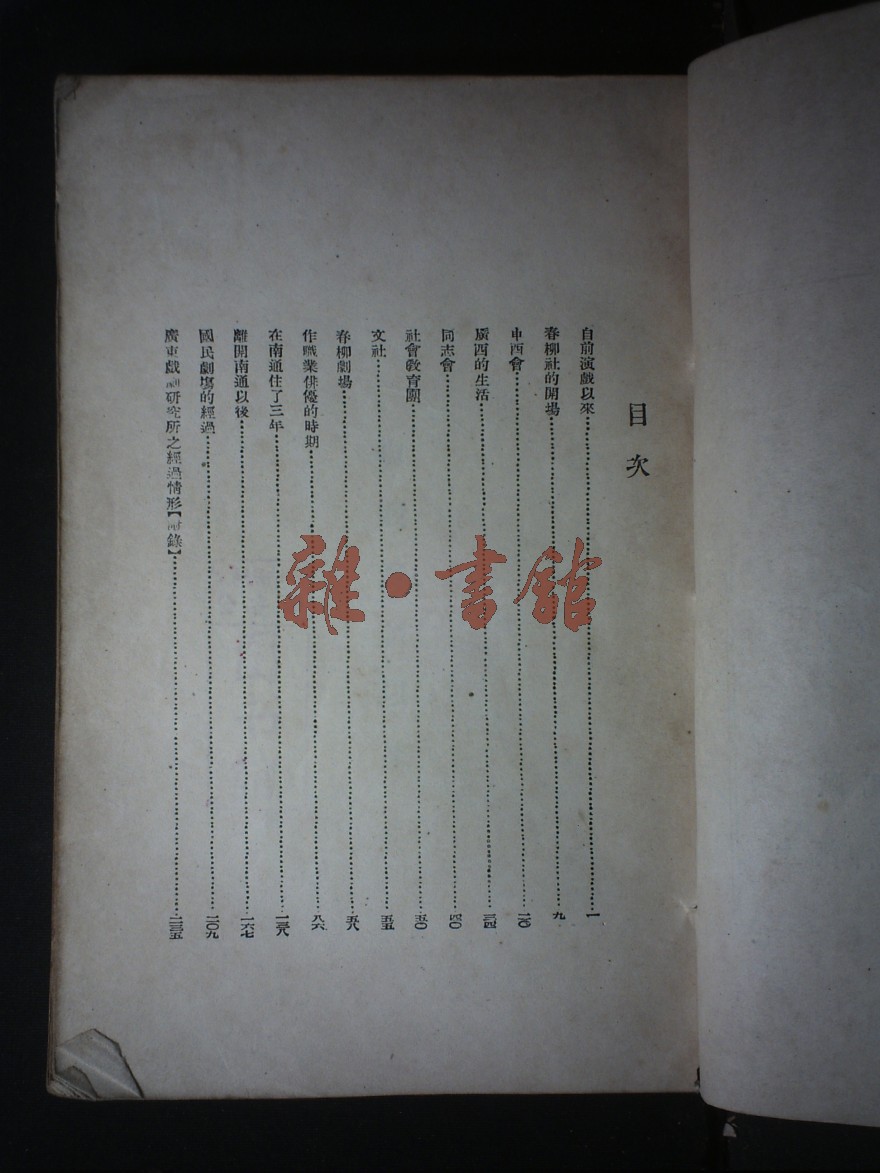 目次
自前演戲以來……一
春柳社的開場……九
申酉會……二〇
廣西的生活……三四
同志會……四〇
社會敎育團……五〇
文社……五五
春柳劇場……五八
作職業俳優的時期……八六
在南通住了三年……一三八
離開南通以後……一六七
國民劇場的經過……二〇九
廣東戲劇硏究所之經過情形【附錄】……二三五
雜·書館